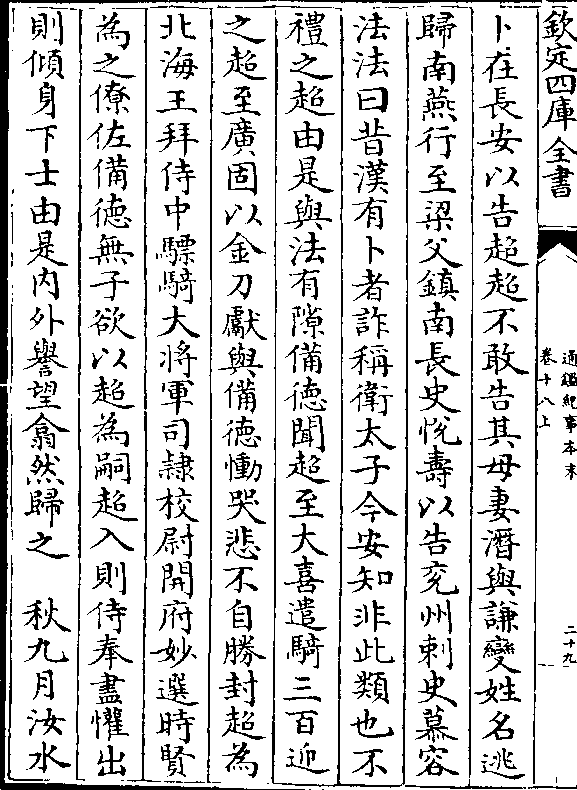 欽定四庫全書
通鑑紀事本末
卷十八上
二十九
卜在長安以告超超不敢告其母妻潛與謙變姓名逃
歸南燕行至梁父鎮南長史悅壽以告兖州刺史慕容
法法曰昔漢有卜者詐稱衛太子今安知非此類也不
禮之超由是與法有隙備德聞超至大喜遣騎三百迎
之超至廣固以金刀獻與備德慟哭悲不自勝封超為
北海王拜侍中驃騎大將軍司隷校尉開府妙選時賢
為之僚佐備德無子欲以超為嗣超入則侍奉盡懽出
則傾身下士由是内外譽望翕然歸之　秋九月汝水